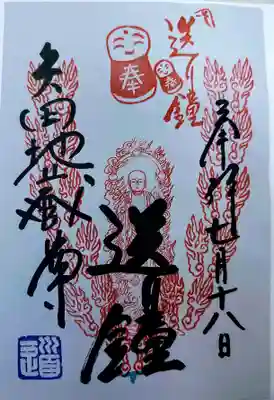 送り鐘
奉
奉拝 七月十八日
送り鐘
矢田地蔵尊